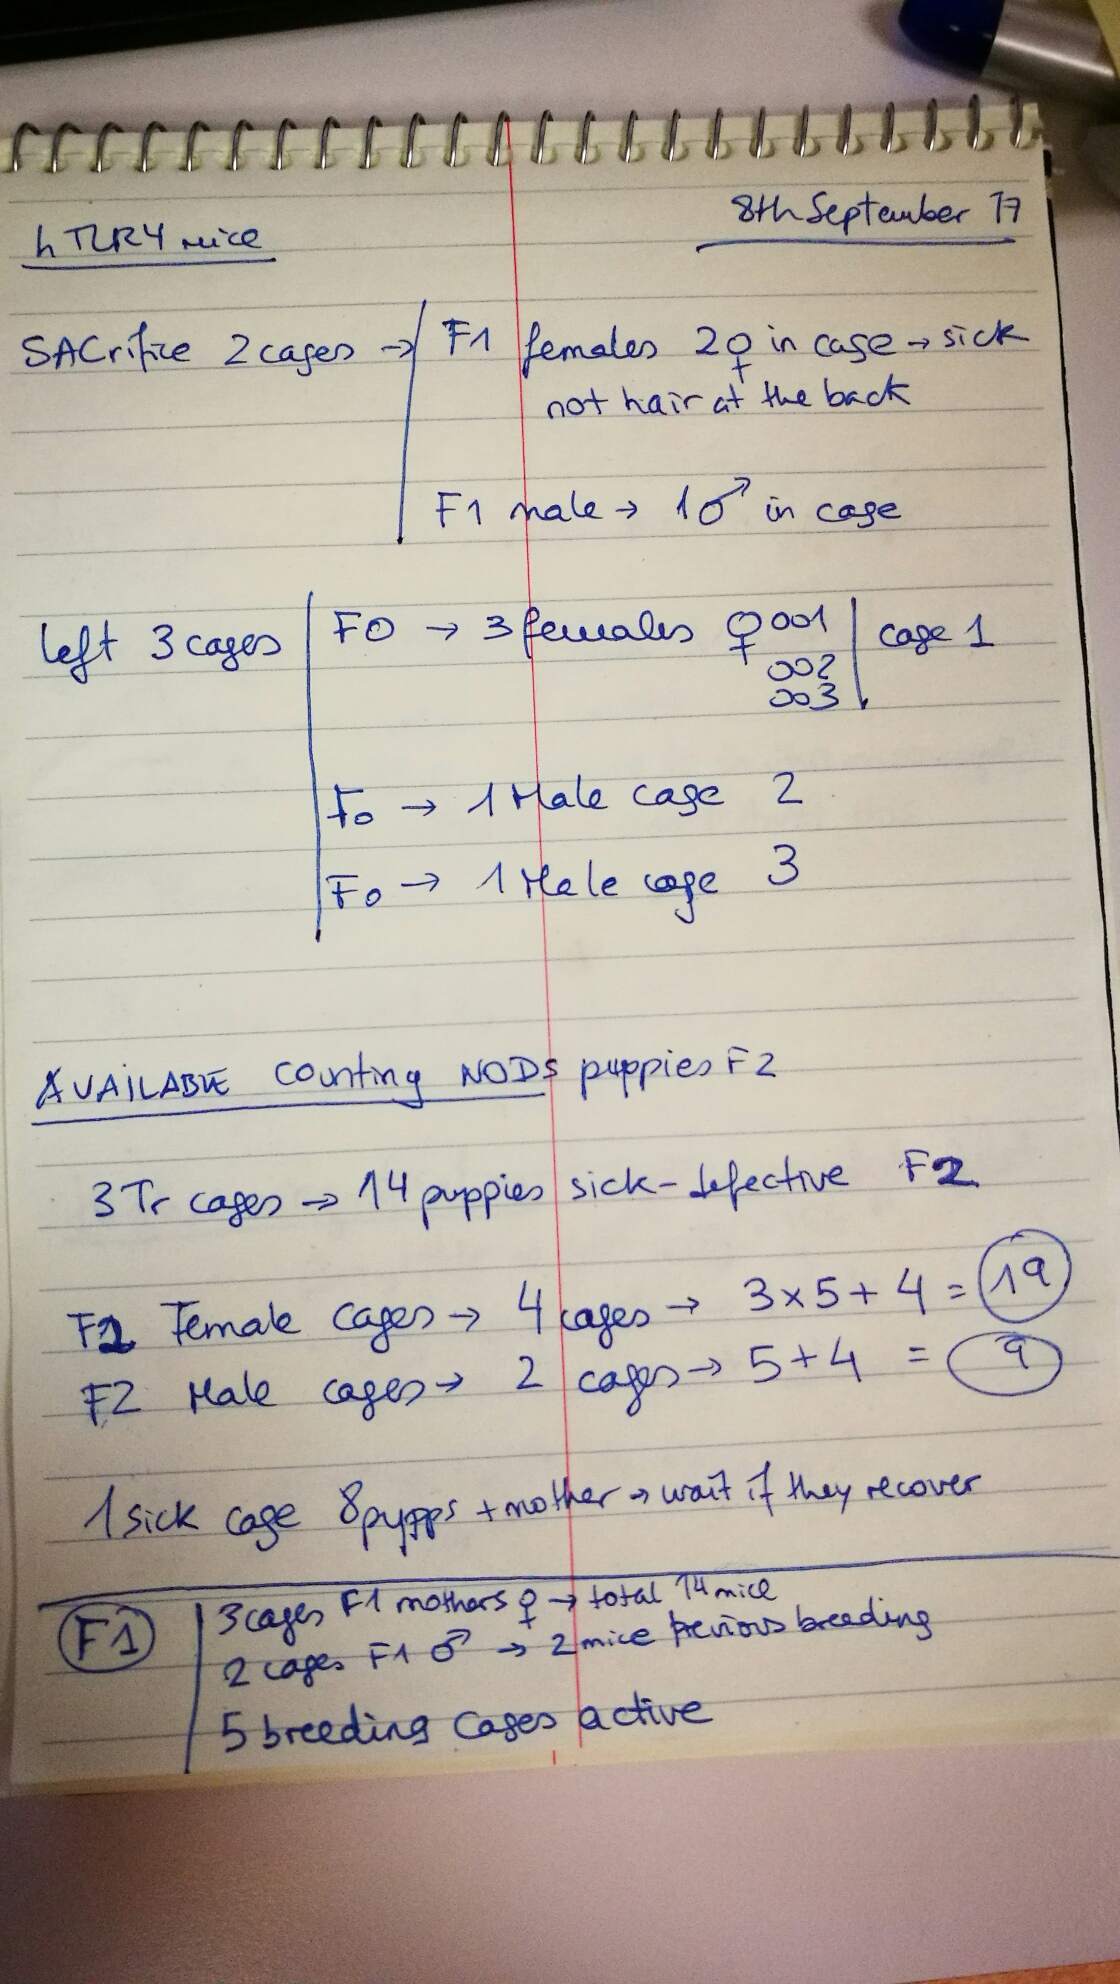 hTLR4 mice
8th September 17
SACrifice 2 cages → F1 females 2♀ in cage → sick
not hair at the back
F1 male → 1♂ in cage
left 3 cages F0 → 3 females ♀ 001 cage 1
002
003
F0 → 1 Male cage 2
F0 → 1 Male cage 3
AVAILABLE counting NODs puppies F2
3 Tr cages → 14 puppies sick-defective F2
F2 Female cages → 4 cages → 3x5+4 = 19
F2 Male cages → 2 cages → 5+4 = 9
1 sick cage 8 pypps + mother → wait if they recover
F1 3 cages F1 mothers ♀ → total 14 mice
2 cages F1 ♂ → 2 mice previous breeding
5 breeding cages active